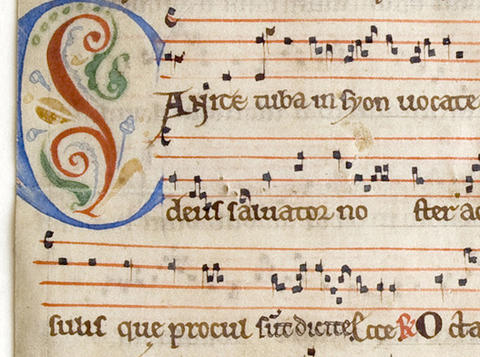 CAnite tuba in syon uocate
deus saluator no ster
sulis que procul sūt dicite Ecce R O